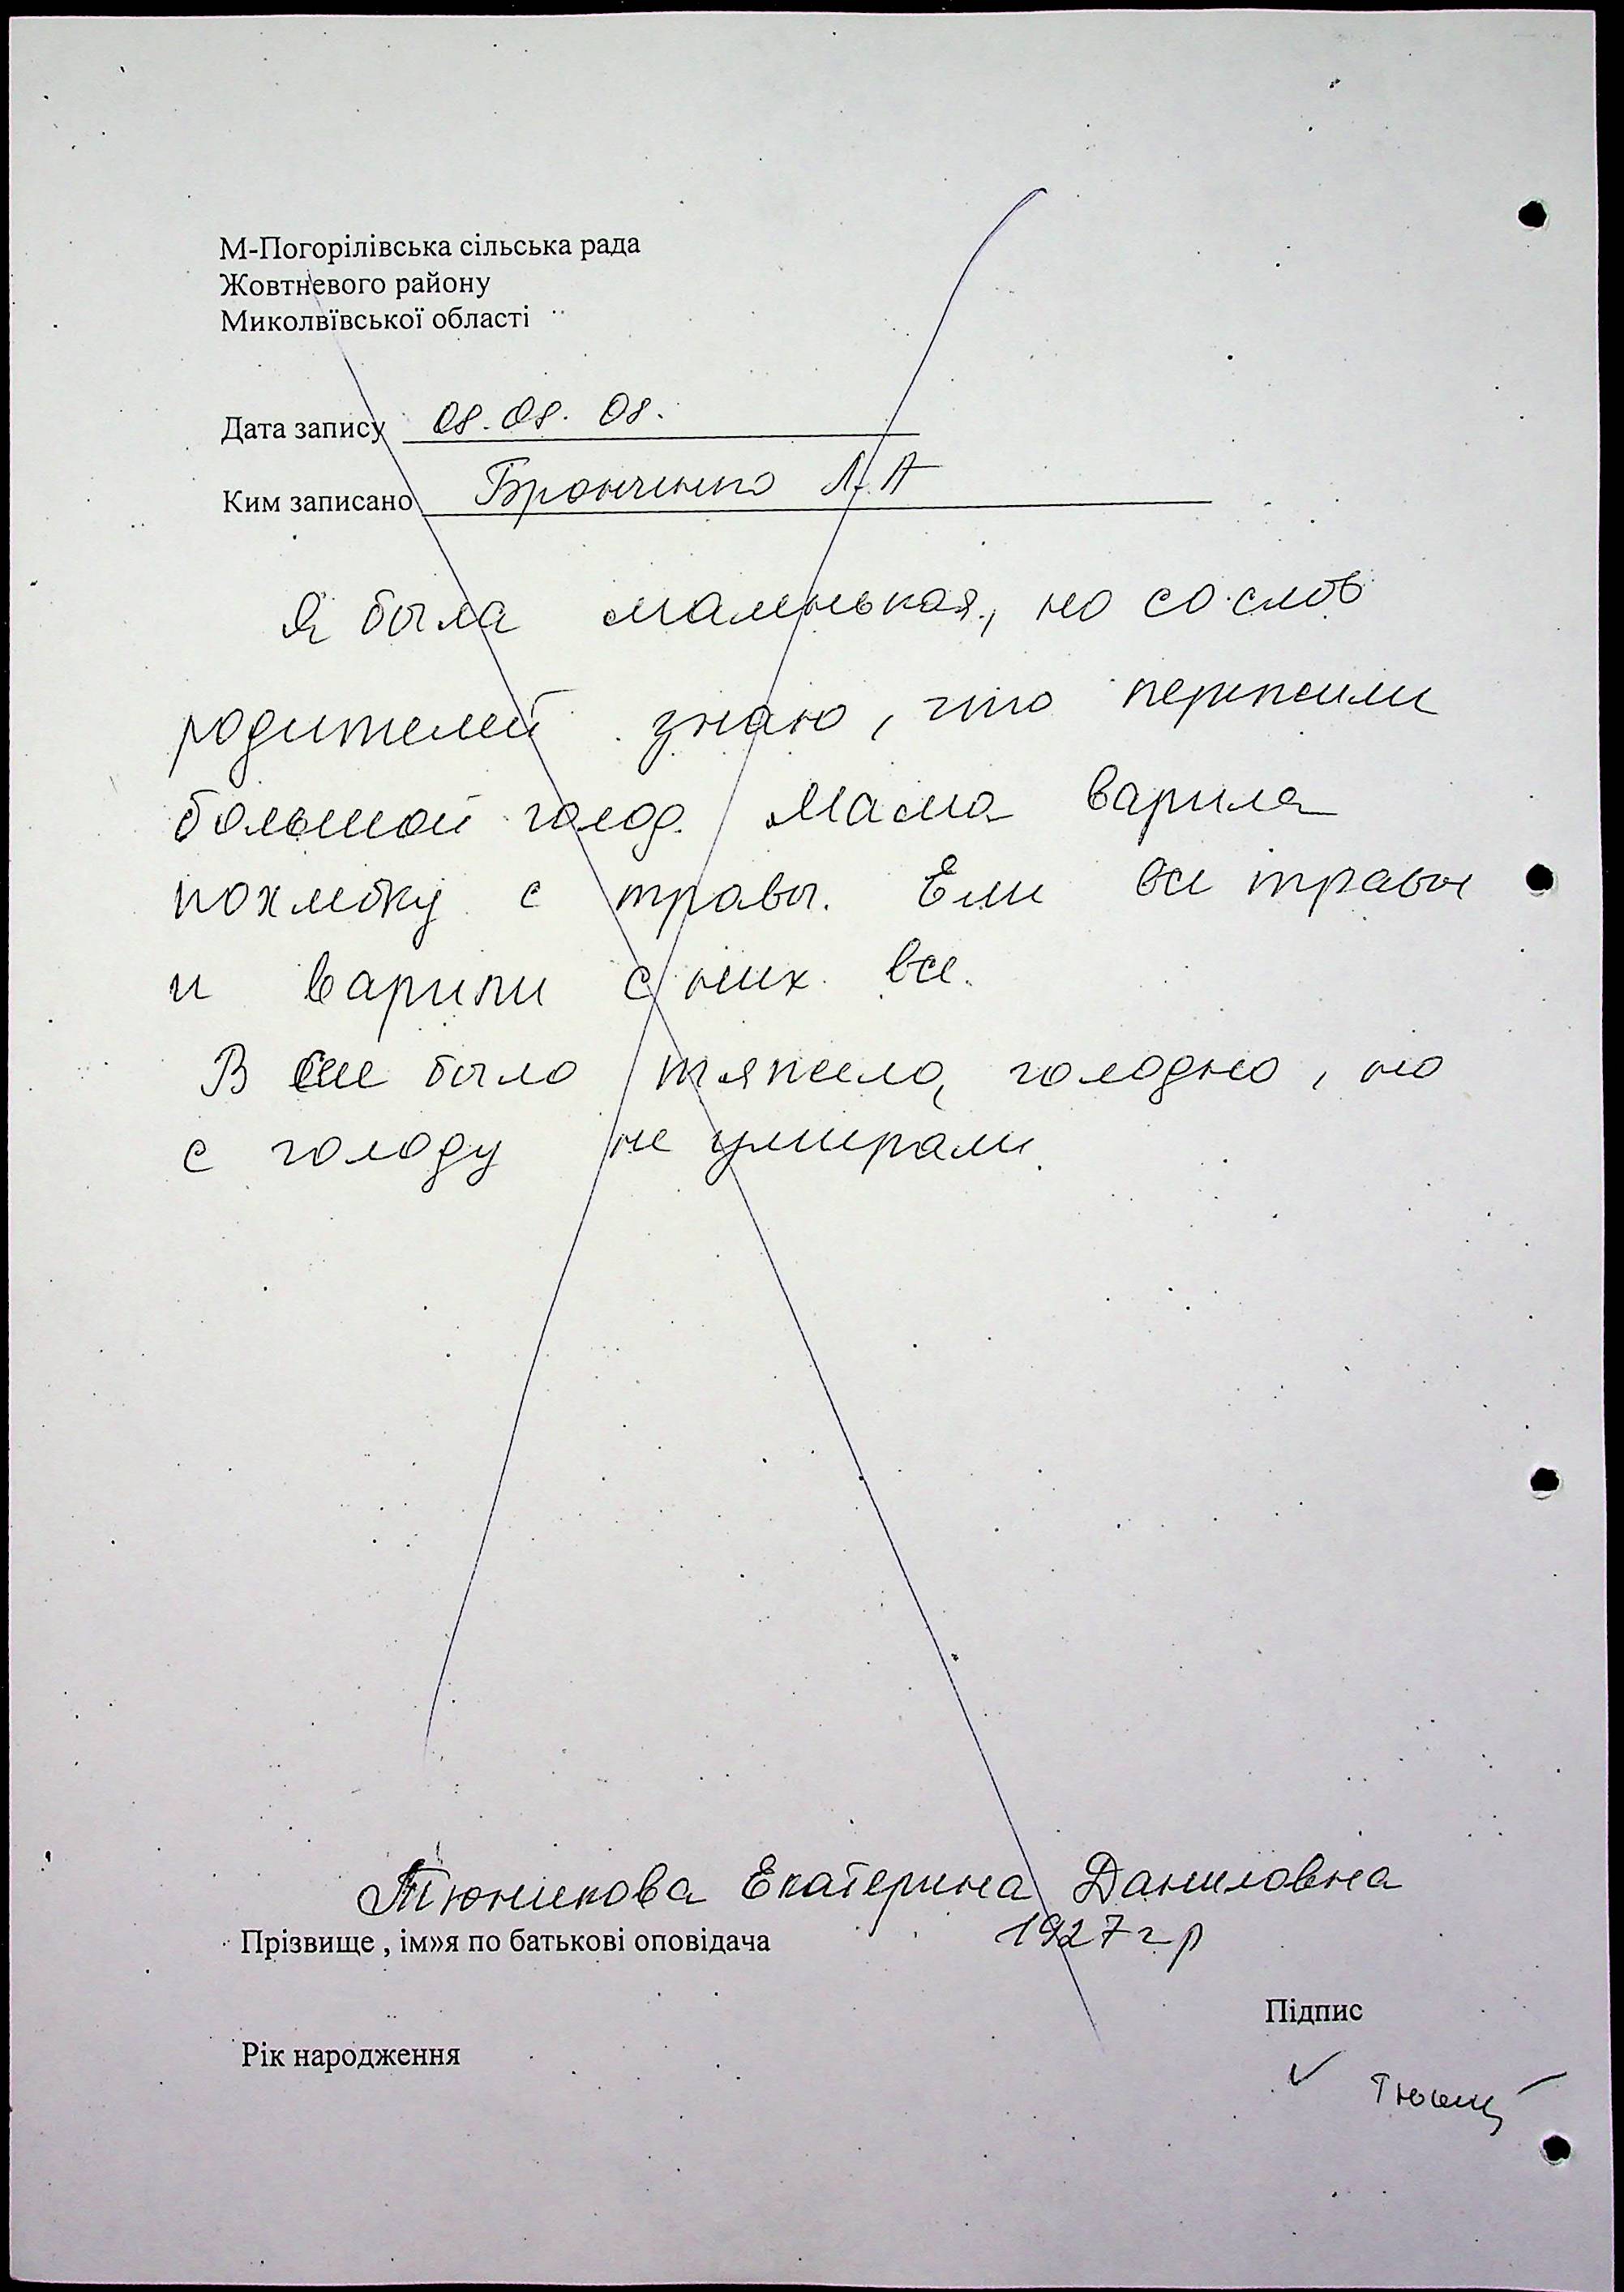 М-Погорілівська сільська рада
Жовтневого району
Миколвївської області
Дата запису 08.08.08.
Ким записано Бронченко Л.А
Я была маленькая, но со слов
родителей знаю, что пережили
большой голод. Мама варила
похлебку с травы. Ели все травы
и варили с них все.
В селе было тяжело, голодно, но
с голоду не умирали.
Тюникова Екатерина Даниловна
Прізвище , ім»я по батькові оповідача 1927 г р
Підпис
Рік народження